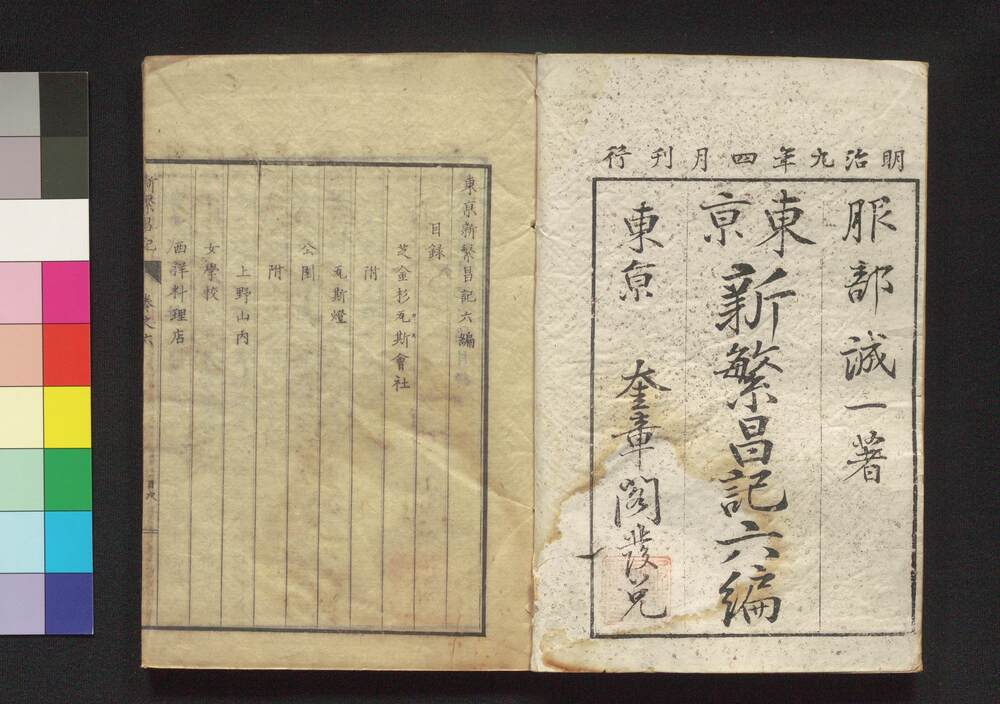 明治九年四月刊行
服部誠一著
東京新繁昌記六編
東京 奎章閣發兌
東京新繁昌記六編
目録
芝金杉瓦斯會社
附
瓦斯燈
公園
附
上野山内
女學校
西洋料理店
新繁昌記 卷之六
目次